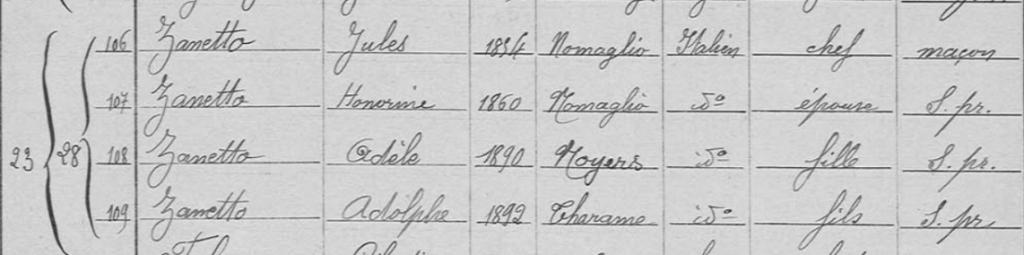 106 Zanetto Jules 1854 Nomaglio Italien chef maçon
107 Zanetto Honorine 1860 Nomaglio do épouse S. pr.
23 28 108 Zanetto Adèle 1890 Noyers do fille S. pr.
109 Zanetto Adolphe 1892 Tharame do fils S. pr